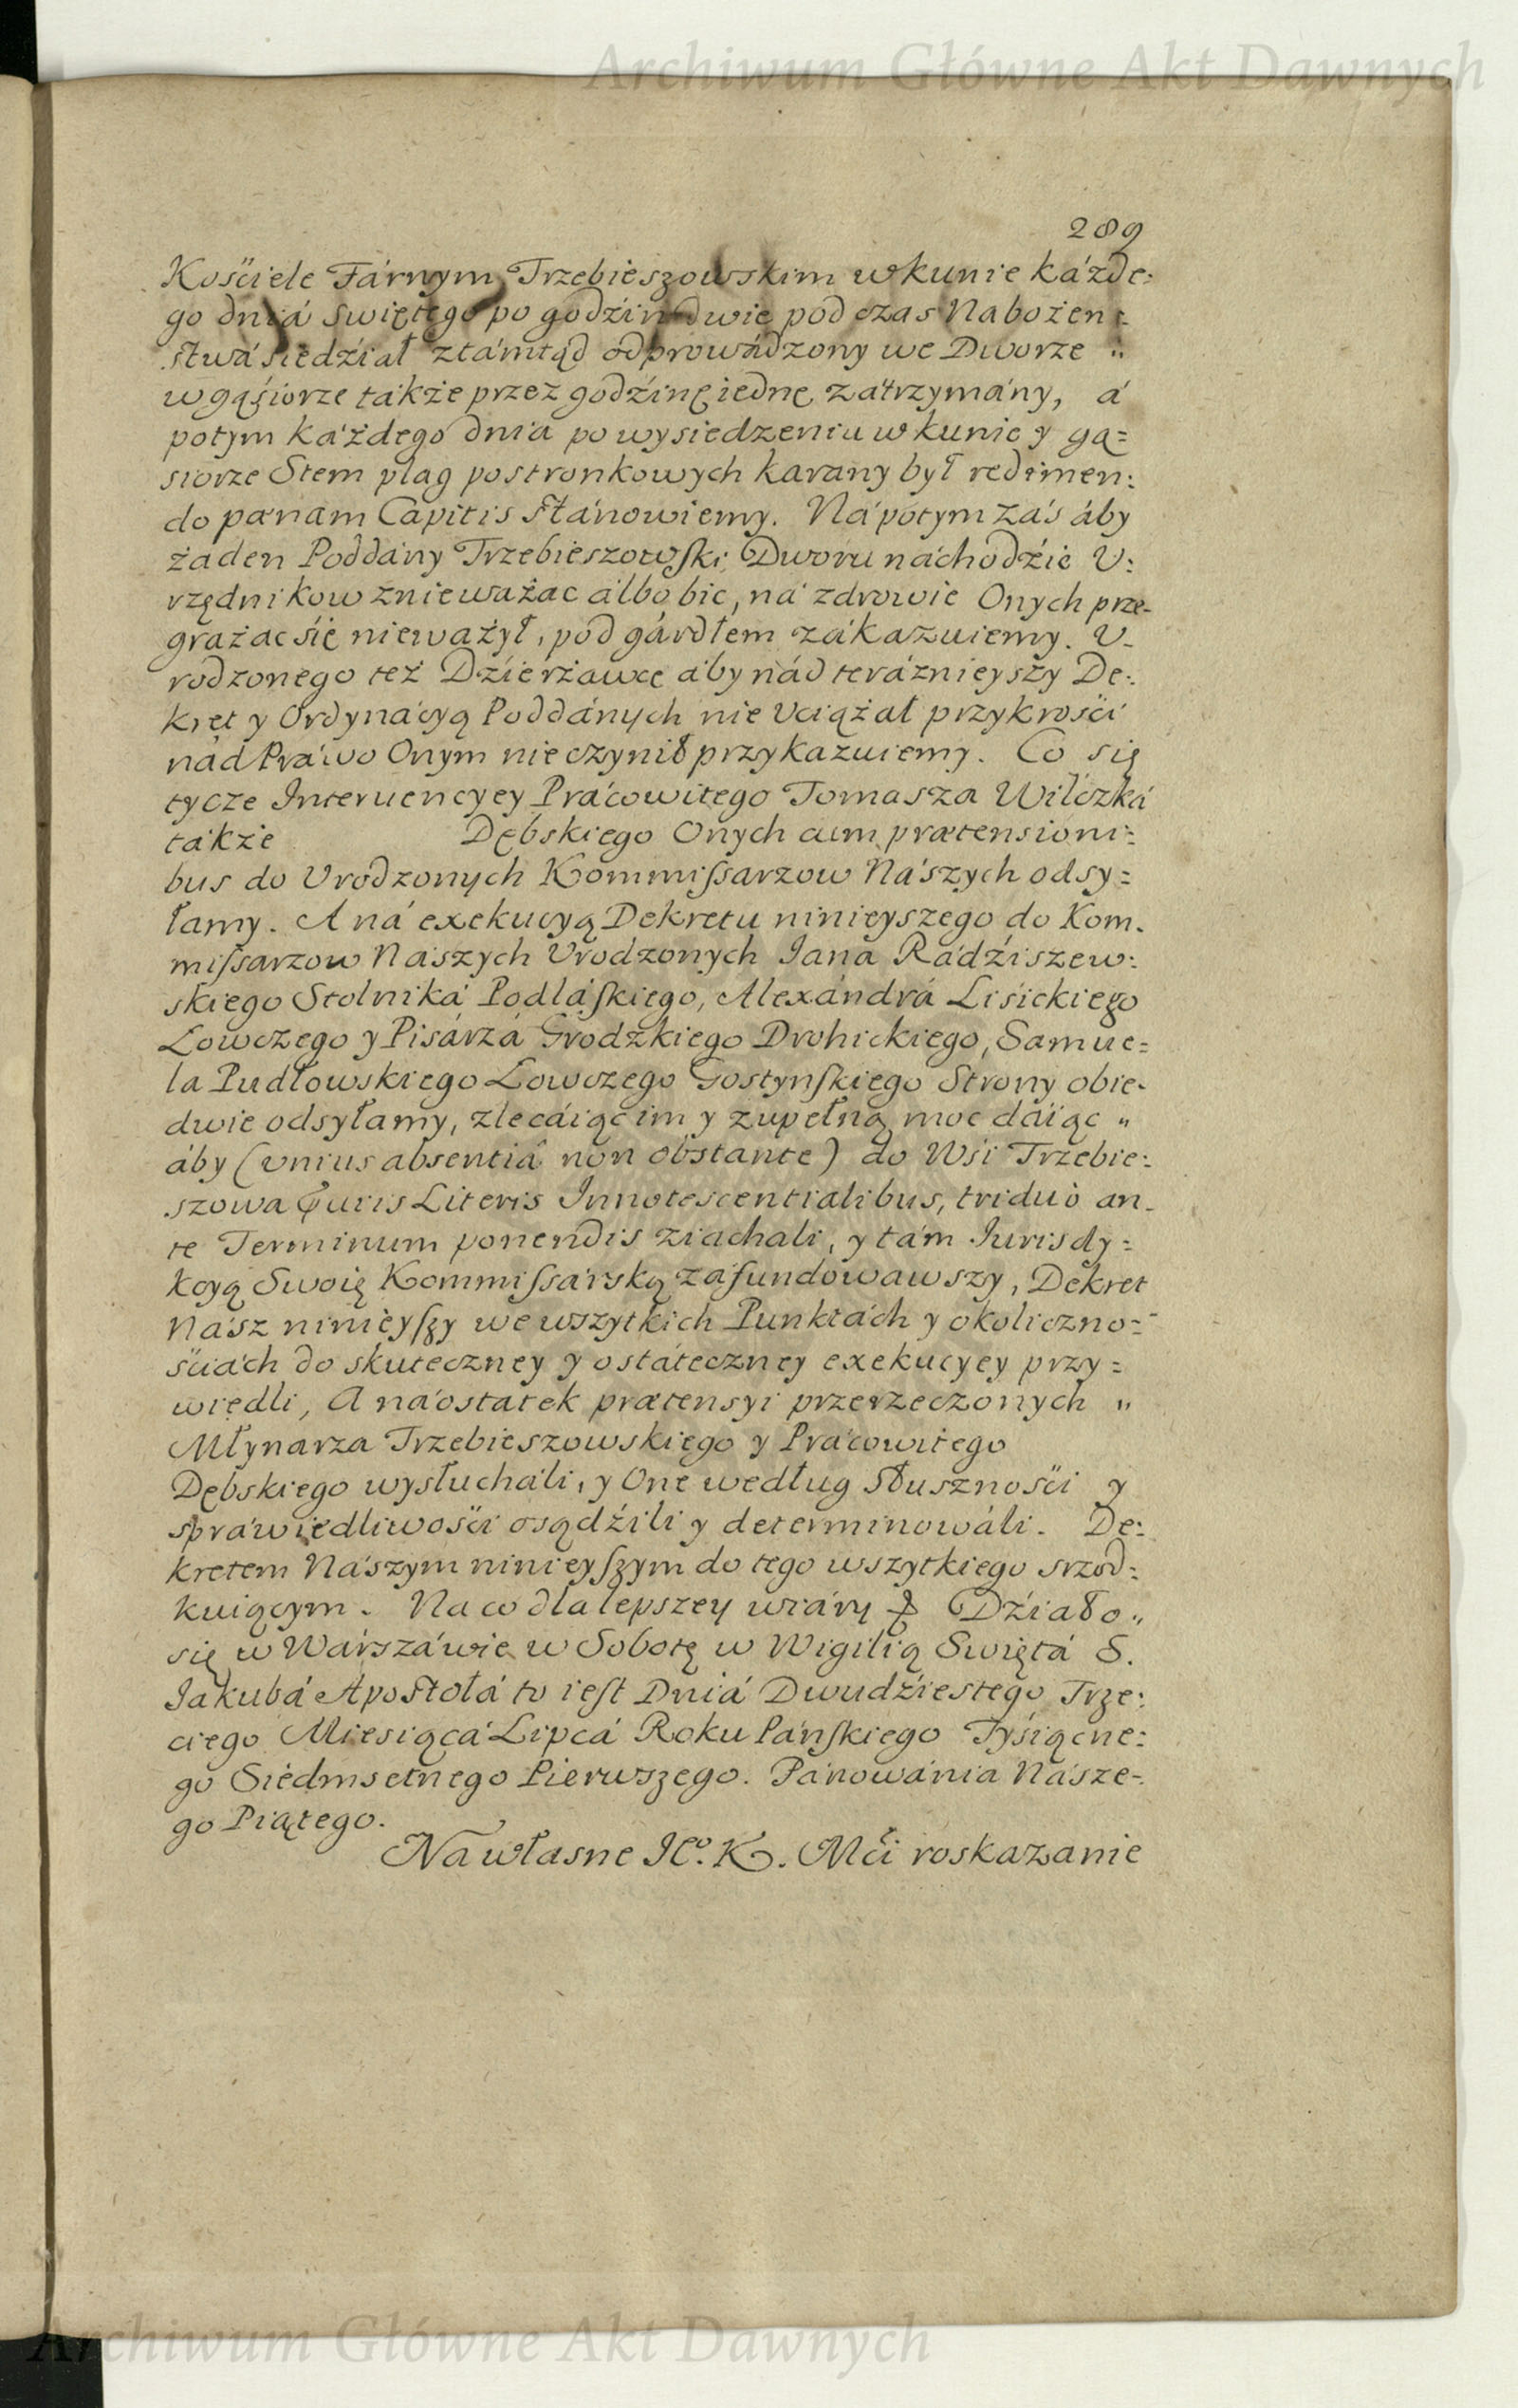 Archiwum Główne Akt Dawnych
289
Kośćiele Fárnym Trzebieszowskim w kunie káżde:
go dniá Swiętego po godzin dwie pod czas Nabożen:
stwá siedział ztámtąd odprowádzony we Dworze "
w gąśiorze także przez godźinę iednę zátrzymány, á
potym káżdego dnia po wysiedzeniu w kunie y gą=
siorze Stem plag postronkowych karany był redimen:
do pœnam Capitis stánowiemy. Ná potym záś áby
żaden Poddány Trzebieszowski Dworu náchodźić V:
rzędnikow znieważac álbo bic, ná zdrowie Onych prze-
grażac śię nieważył, pod gárdłem zákazuiemy. V-
rodzonego też Dzierżawcę áby nád teráznieyszy De:
kret y Ordynácyą Poddánych nie Vciążał przykrośći
nád Práwo Onym nie czynił przykazuiemy. Co się
tycze Interuencyey Prácowitego Tomasza Wilczká
także Dębskiego Onych cum prætensioni:
bus do Vrodzonych Kommissarzow Nászych odsy=
łamy. A ná exekucyą Dekretu ninieyszego do Kom.
missarzow Nászych Vrodzonych Iana Rádźiszew:
skiego Stolniká Podláskiego, Alexándrá Liśickiego
Łowczego y Pisárzá Grodzkiego Drohickiego, Samue=
la Pudłowskiego Łowczego Gostynskiego Strony obie-
dwie odsyłamy, zlecáiąc im y zupełną moc dáiąc "
áby (vnius absentiâ non obstante) do Wśi Trzebie:
szowa Quris Literis Innotescentialibus, triduò an-
te Terminum ponendis ziachali, y tám Iurisdy=
kcyą Swoię Kommissárską záfundowawszy, Dekret
Nász ninieyszy we wszytkich Punktách y okoliczno=
śćiách do skuteczney y ostáteczney exekucyey przy=
wiedli, A náostatek prætensyi przerzeczonych "
Młynarza Trzebieszowskiego y Prácowitego
Dębskiego wysłucháli, y One według Słusznośći y
spráwiedliwośći osądźili y determinowáli. De:
kretem Nászym ninieyszym do tego wszytkiego srzod:
kuiącym. Na co dla lepszey wiáry & Dźiało "
się w Wárszáwie w Sobotę w Wigilią Swiętá S.
Jakubá Apostołá to iest Dniá Dwudźiestego Trze:
ciego Miesiącá Lipcá Roku Páńskiego Tyśiącne:
go Siedmsetnego Pierwszego. Pánowánia Násze-
go Piątego.
Na własne JE°. K. Mći roskazanie
Archiwum Główne Akt Dawnych